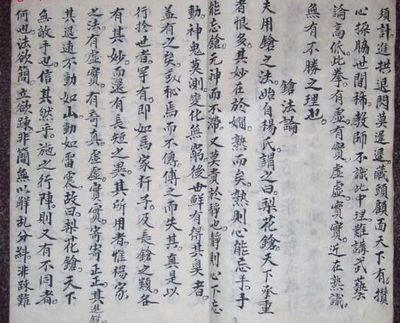 須計進拱退閃莫遲遲藏頭顧面天下有攢
心採腸世間稀教師不識此中理難講武藝
論高低此拳有虛有實虛虛實實近在無識
無有不勝之理也
鎗法論
夫用鎗之法始自楊氏謂之曰梨花鎗天下重
者恨多其妙在於嫺熟而矣熟則心能忘手手
能忘鎗元神而不滯又莫貴於靜也靜則心下忘
動神鬼莫測變化無窮後世鮮有得其奧者
蓋有之矣或秘焉而不傳傳之而失其真是以
行於世者罕有即如馬家杆子及長鎗之類各
有其妙而還有長短之異其所用者惟楊家
之法有虛實有奇真虛虛實實奇奇正正其進銳
其退速不動如山動如雷震故曰梨花鎗天下
無敵手也信其然乎施之行陣則又有不同者
何也法欲簡立欲疎非簡無以解亂分糾非疎難